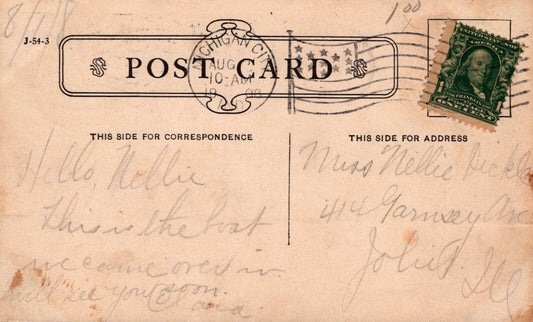 8/7/8
1.00
J-54-3
MICHIGAN CITY
AUG
10-AM
1908
POST CARD
1
ONE CENT
THIS SIDE FOR CORRESPONDENCE
THIS SIDE FOR ADDRESS
Hello, Nellie,
This is the boat
we came over in
will see you soon.
Clara.
Miss Nellie
414 Garnsey Ave
Joliet. Ill